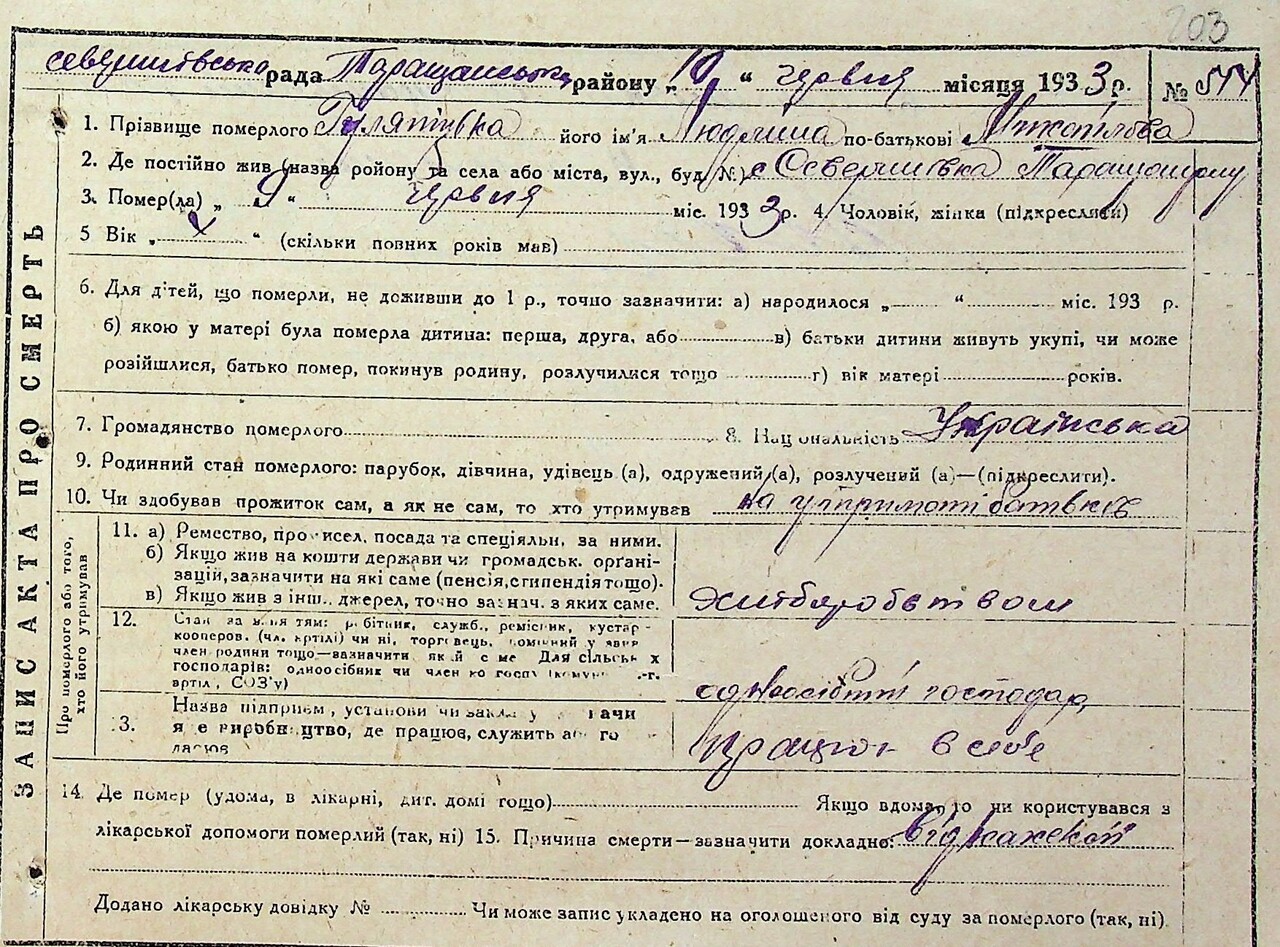 203
рада Таращанська району „10" червня місяця 1933 р. №
1. Прізвище померлого його ім'я Людмила по-батькові
2. Де постійно жив (назва ройону та села або міста, вул., буд. N.) с Северинівка
3. Помер(ла) „ 9 " червня міс. 1933 р. 4. Чоловік, жінка (підкреслити)
5 Вік „ " (скільки повних років мав)
6. Для дітей, що померли, не доживши до 1 р., точно зазначити: а) народилося „ " міс. 193 р.
б) якою у матері була померла дитина: перша, друга, або в) батьки дитини живуть укупі, чи може
розійшлися, батько помер, покинув родину, розлучилися тощо г) вік матері років.
7. Громадянство померлого 8. Національність Українська
9. Родинний стан померлого: парубок, дівчина, удівець (а), одружений (а), розлучений (а)—(підкреслити).
10. Чи здобував прожиток сам, а як не сам, то хто утримував на батьків
ЗАПИС АКТА ПРО СМЕРТЬ
Про померлого або того, хто його утримував
11. а) Ремество, промисел, посада та спеціяльн. за ними.
б) Якщо жив на кошти держави чи громадськ. орґані-
зацій, зазначити на які саме (пенсія, стипендія тощо).
в) Якщо жив з інш. джерел, точно зазнач. з яких саме.
12. член родини тощо—зазначити Для сільськ х
господарів: одноосібник чи член
артілі, СОЗ'у)
господар
13. Назва підприєм., установи чи
виробництво, де працює, служить
працює в себе
14. Де помер (удома, в лікарні, дит. домі тощо) Якщо вдома, то чи користувався з
лікарської допомоги померлий (так, ні) 15. Причина смерти—зазначити докладно: від
Додано лікарську довідку № Чи може запис укладено на оголошеного від суду за померлого (так, ні)